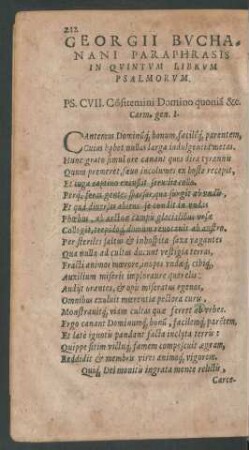 212
GEORGII BVCHA-
NANI PARAPHRASIS
IN QVINTVM LIBRVM
PSALMORVM.
PS. CVII. Cōfitemini Domino quoniā &c.
Carm. gen. I.
CAntemus Dominūq́, bonum, facilēq́, parentem,
Cuius habet nullas larga indulgentia metas.
Hunc grato simul ore canant quos dira tyranni
Quum premeret, saluo incolumes ex hoste recepit,
Et iuga captiuo excussit seruilia collo.
Perq́,
Et qui diuersos abiens se condit in vndis
Phœbus
Collegit, trepidosq́, domum reuocauit ab austro.
Per steriles saltus & inhospita saxa vagantes
Qua nulla ad cultas ducunt vestigia terras,
Fracti animos mœrore, inopes vndaq́, cibiq́,
Auxilium miseris implorauere querelis:
Audijt orantes, & opis miseratus egentes,
Omnibus exoluit mœrentia pectora curis,
Monstrauitq́, viam cultas quæ ferret ad vrbes.
Ergo canant Dominumq́, bonū, facilemq́, parētem,
Et latè ignotis pandant facta inclyta terris:
Quippe sitim victuq́, famem compescuit ægram,
Reddidit & membris vires animoq́, vigorem.
Quiq́, Dei monitis ingrata mente relictis,
Carce-